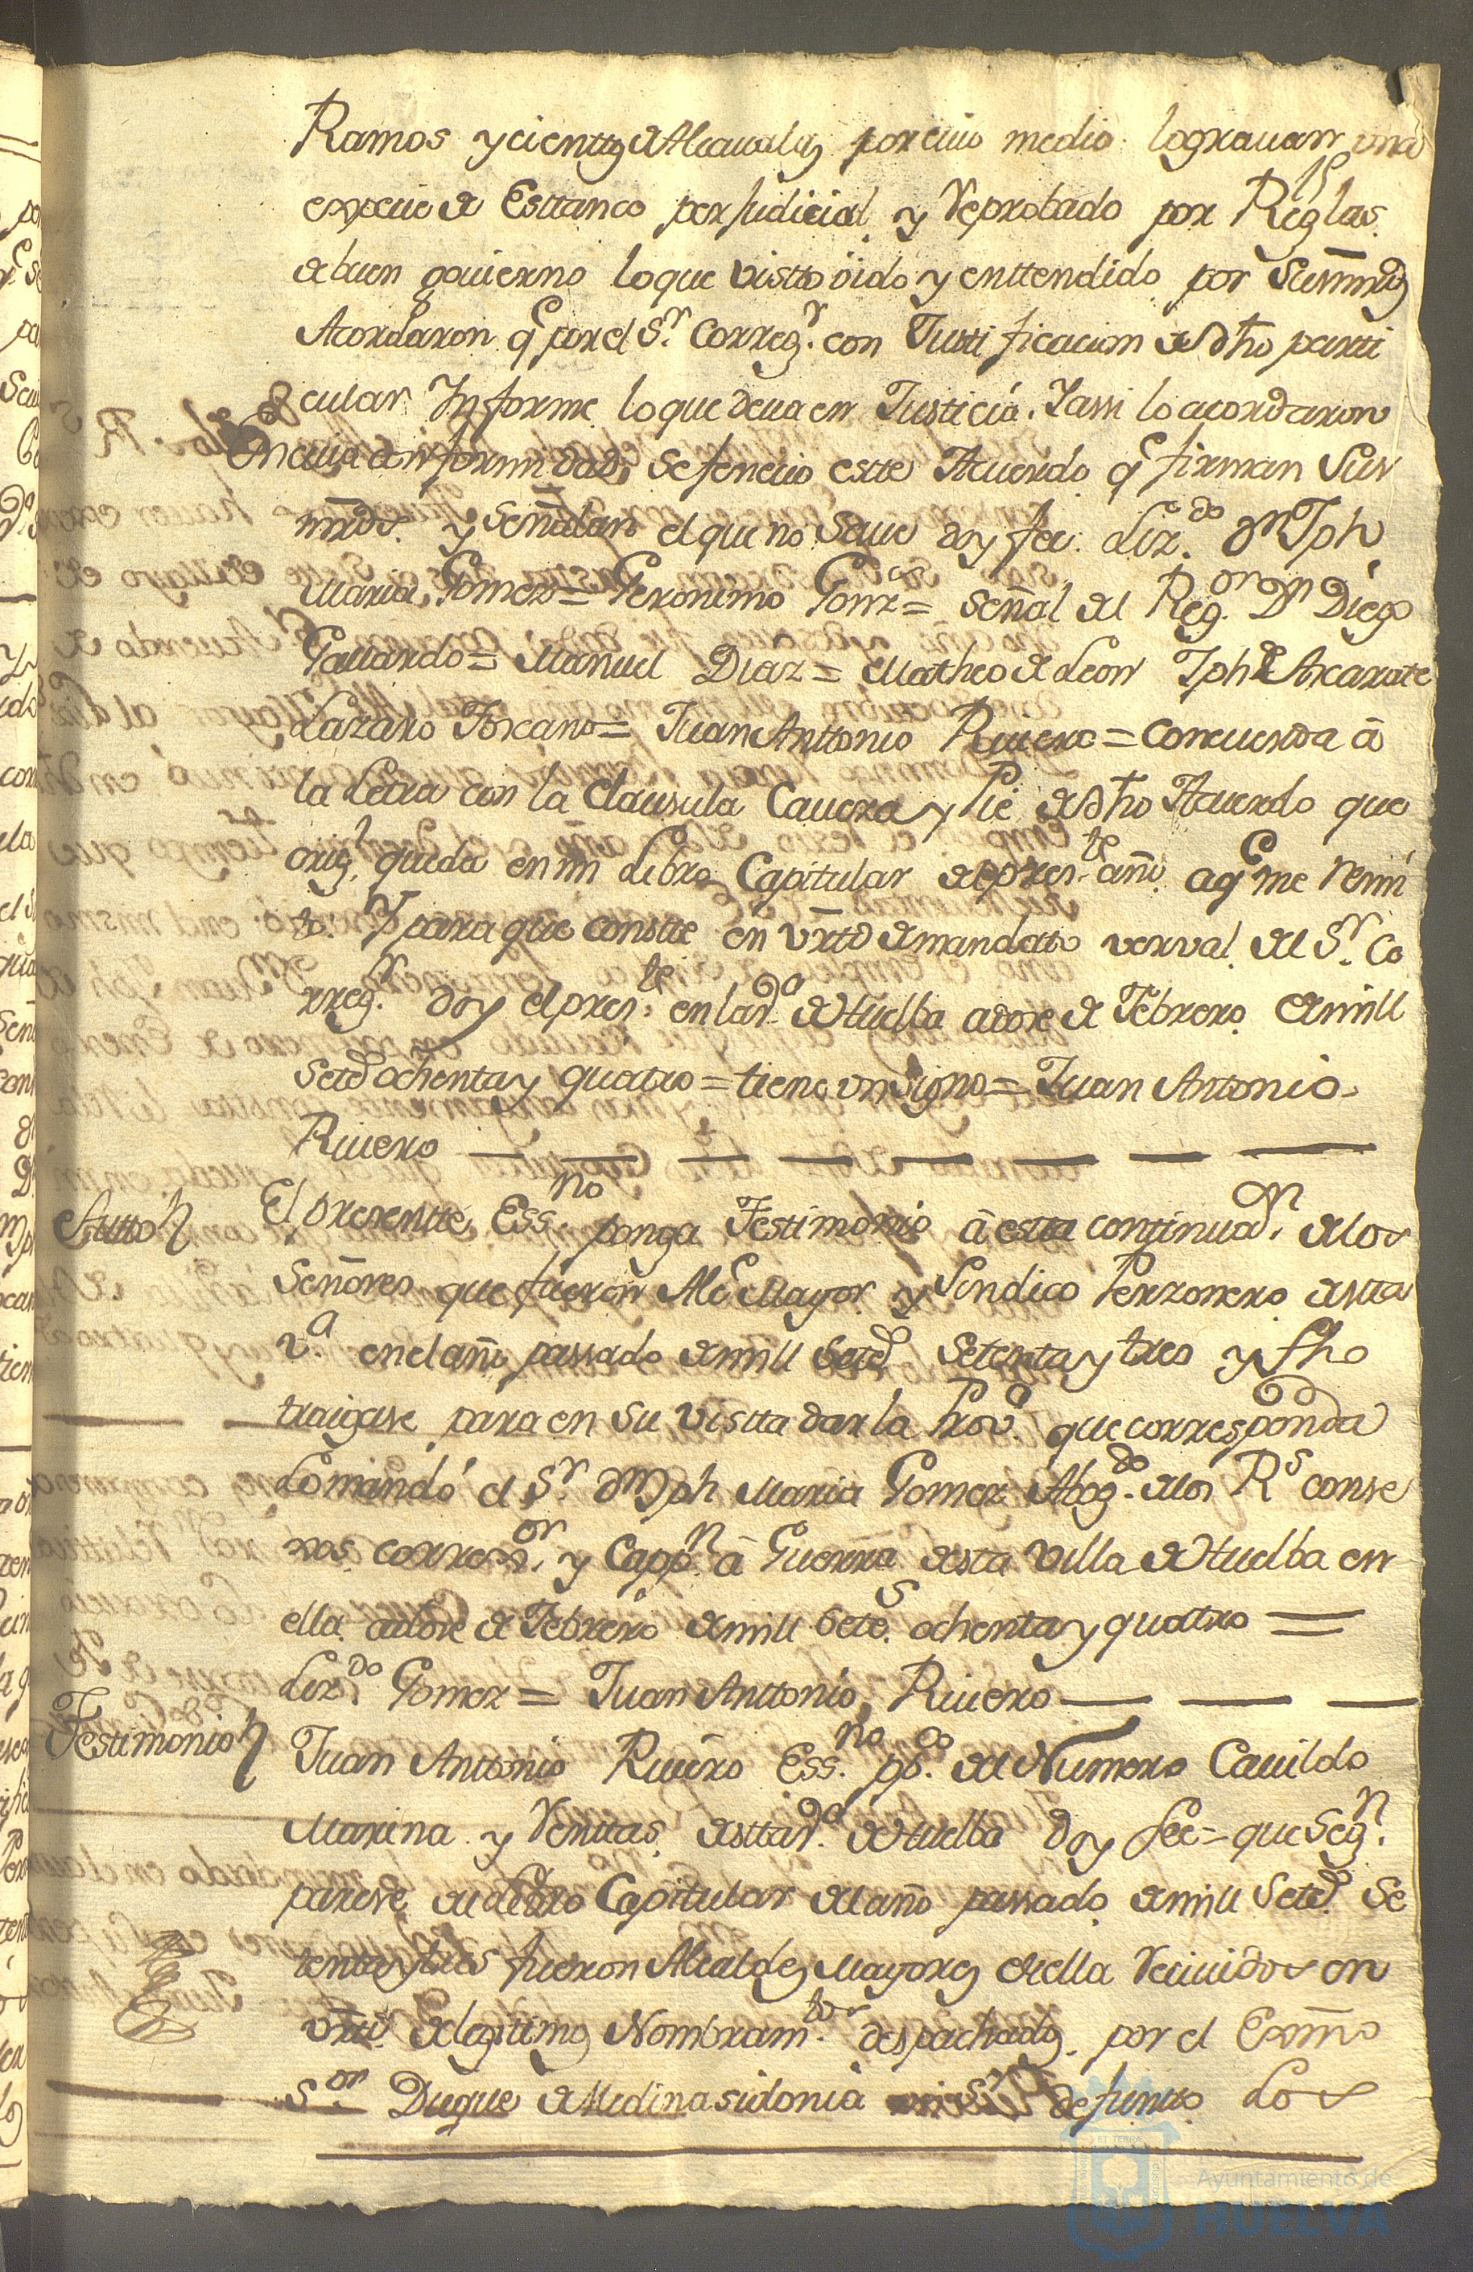 Ramos y cienttos de Alcavalas por cuio medio lograuan una
especie de Esttanco perjudicial y reprobado por Reglas
de buen govierno lo que vistto oido y enttendido por Susmrds
Acordaron q por el Sr. Correg.r con Justificacion de dho parti
cular Informe lo que deva en Justicia. Y assi lo acordaron
En cuia conformidad se fenecio estte Acuerdo q firman Sus
mrds. y Señalan el que no Save doy fee. Liz.do Dn Jph
Maria Gomez = Geronimo Gonz.es = señal del Reg.or Dn Diego
Gallardo = Manuel Diaz = Matheo de Leon Jph de Arcarate
Lazaro Toscano = Juan Anttonio Rivero = Concuerda â
la Letra con la Clausula Cavera y Pie de dho Acuerdo que
orig.l queda en mi Libro Capitular del pres.te año. aq me remi
to. Y para que constte en vrtd de mandato verval del Sr. Co
rreg.r doy el pres.te en la v.a de Huelba a doze de Febrero de mill
seted ochenta y quatro = tiene un signo = Juan Antonio
Rivero
Autto
El presentte Ess.no ponga Testimonio â estta continuac.n de los
Señores que fueron Alc Mayor y Sindico Perzonero de estta
v.a en el añ passado de mill Seted Setenta y tres y fho
traigase para en su vistta dar la Prov.a que corresponda
Lo mandó el Sr. Dn Jph Maria Gomez Abog.do de los Rs conse
xos corre.or y Capp.n â Guerra de esta Villa de Huelba en
ella a doze de Febrero de mill Sete.s ochenta y quatro =
Liz.do Gomez = Juan Anttonio Rivero
Testimonio
Juan Antonio Rivero Ess.no pp.co del Numero Cavildo
Marina y Renttas de estta v.a de Huelba doy fee = que seg.n
parese del Libro Capitular del año passado de mill Seted Se
tenta y tres fueron Alcaldes Mayores de ella recividos en
vrtd de legitimos Nombram.tos despachados por el Exmo
S.or Duque de Medinasidonia defuntto Los
Ayuntamiento de
HUELVA